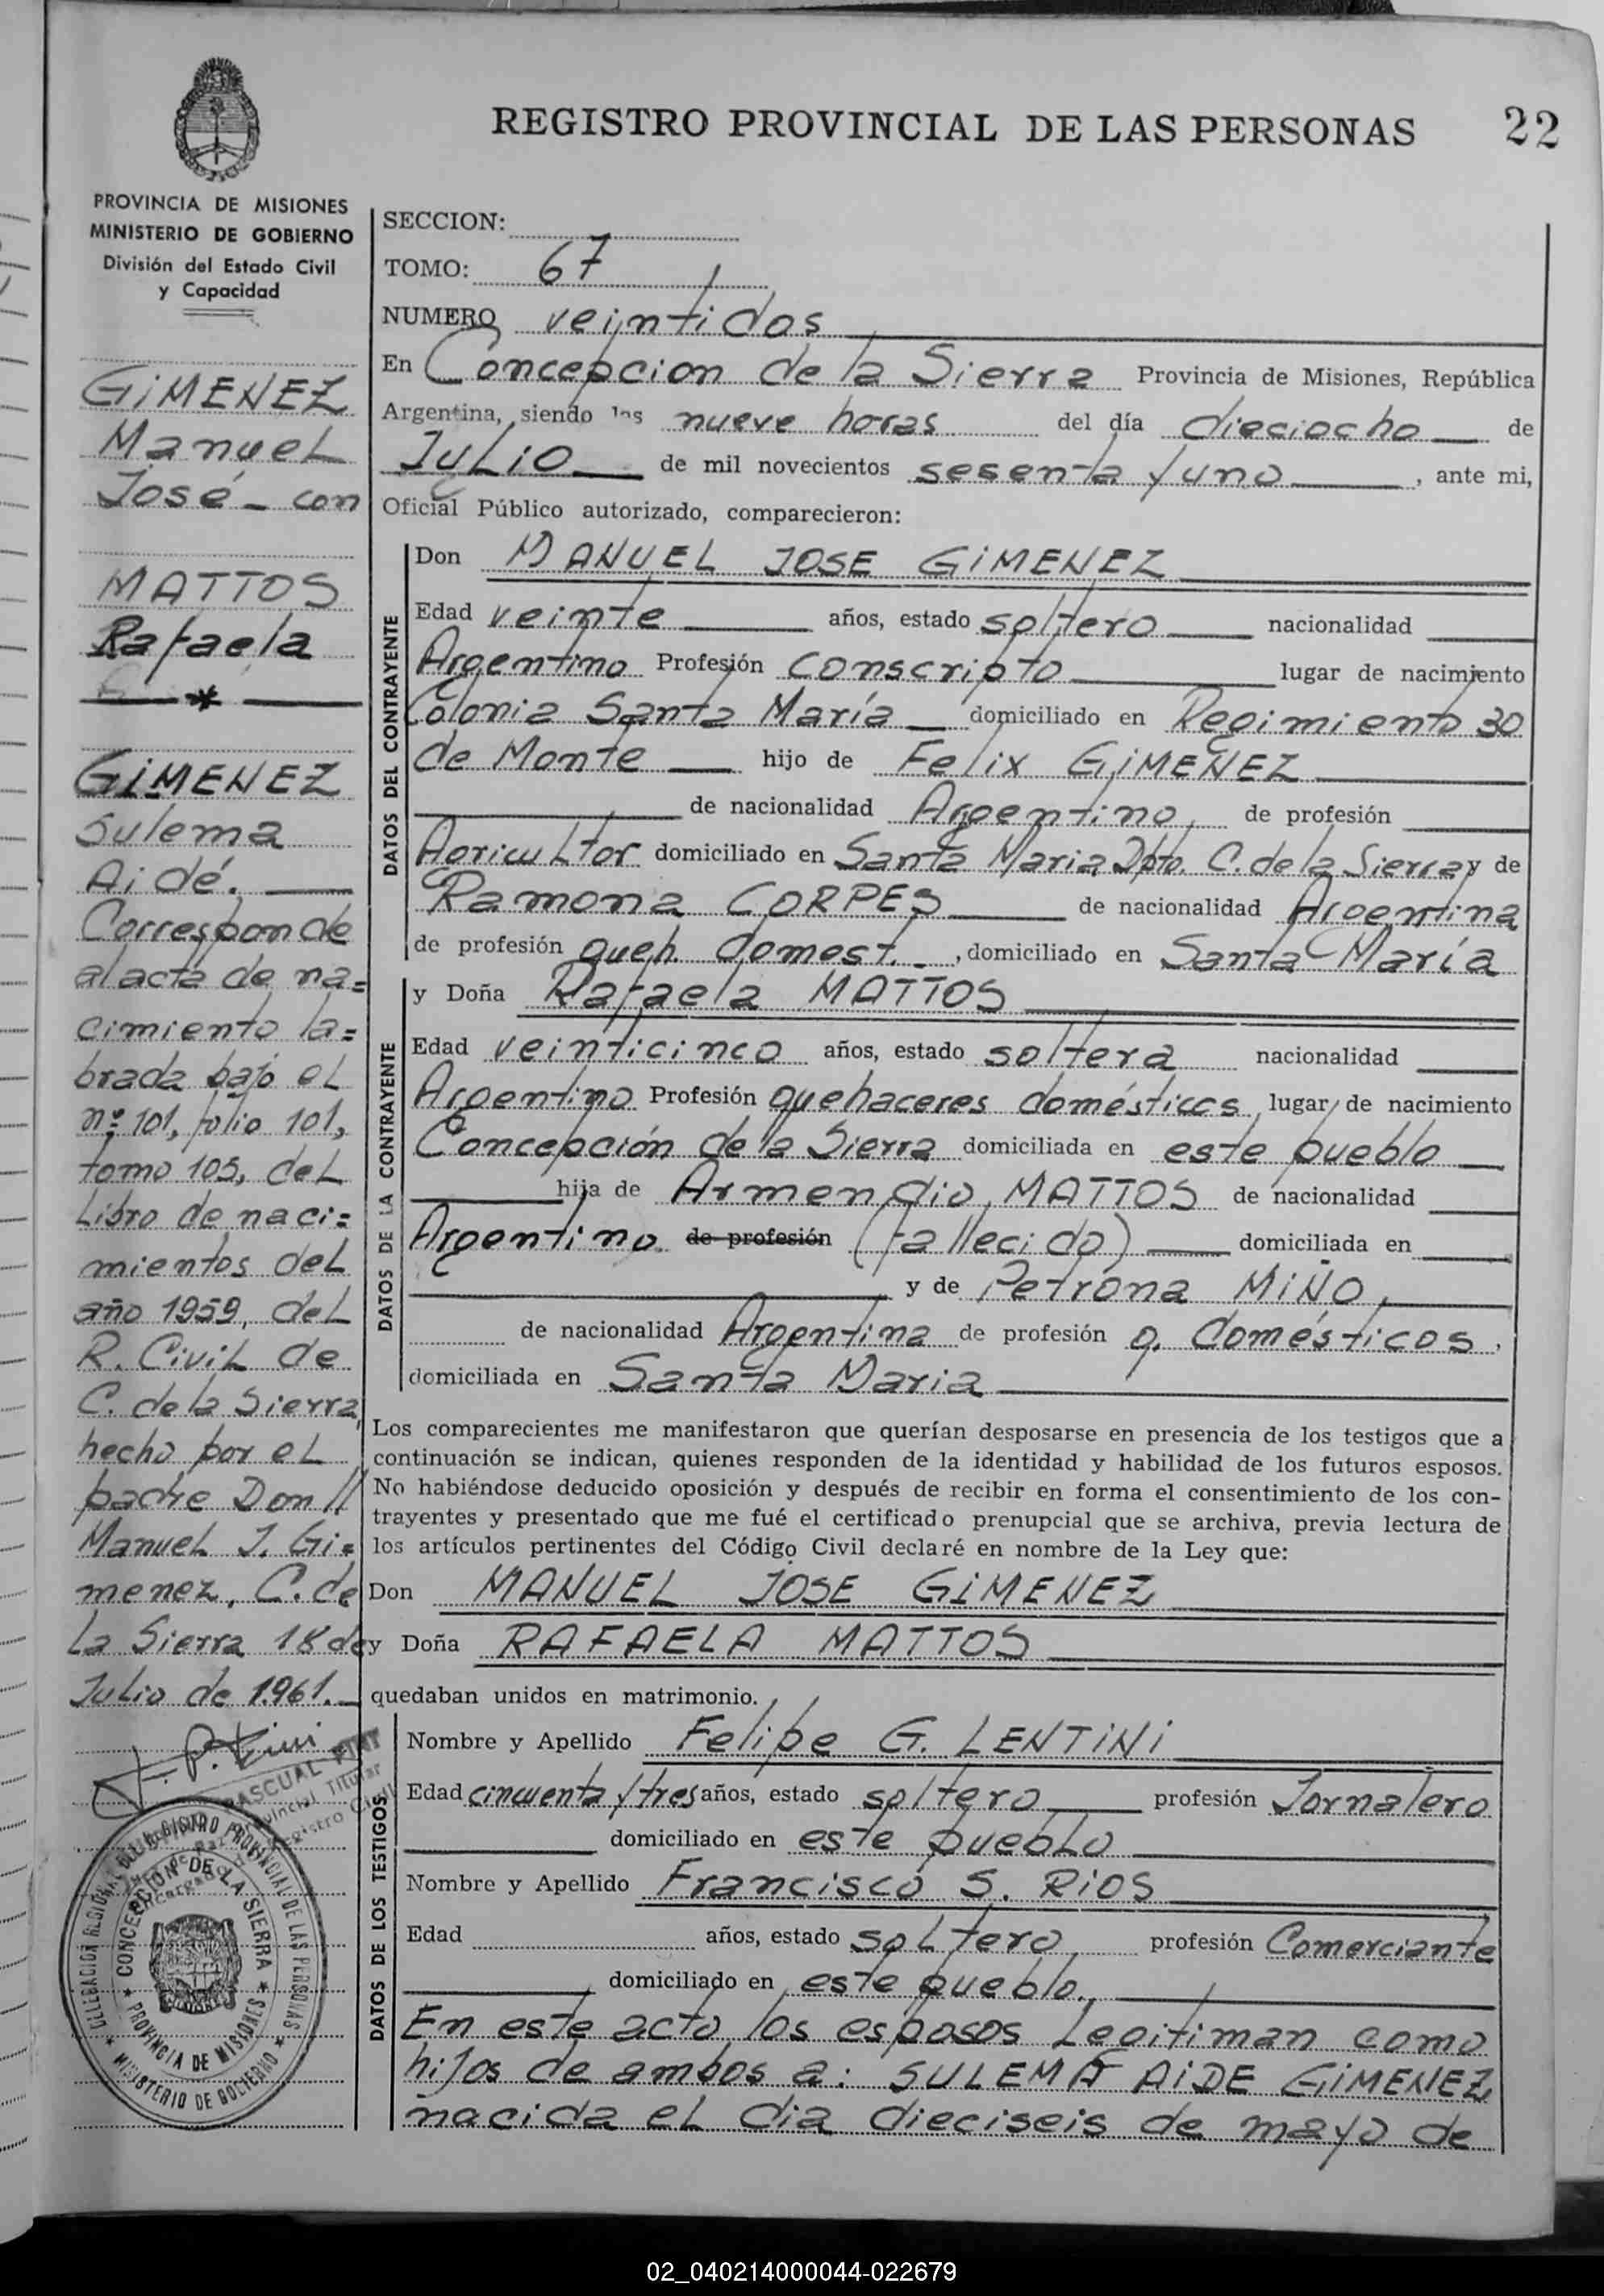 REGISTRO PROVINCIAL DE LAS PERSONAS 22
PROVINCIA DE MISIONES
MINISTERIO DE GOBIERNO
División del Estado Civil
y Capacidad
GiMENEZ
Manuel
José - con
MATTOS
Rafaela
GiMENEZ
Sulema
Aidé.
Corresponde
al acta de na=
cimiento la=
brada bajo el
nº 101, folio 101,
tomo 105, del
Libro de naci=
mientos del
año 1959, del
R. Civil de
C. de la Sierra,
hecho por el
padre Don //
Manuel J. Gi=
menez, C. de
la Sierra 18 de
Julio de 1961.
PASCUAL
CONCEPCION DE LA SIERRA
PROVINCIA DE MISIONES
MINISTERIO DE GOBIERNO
SECCION:
TOMO: 67
NUMERO veintidos
En Concepcion de la Sierra Provincia de Misiones, República
Argentina, siendo las nueve horas del día dieciocho de
Julio de mil novecientos sesenta y uno, ante mi,
Oficial Público autorizado, comparecieron:
DATOS DEL CONTRAYENTE
Don MANUEL JOSE GiMENEZ
Edad veinte años, estado soltero nacionalidad
Argentino Profesión Conscripto lugar de nacimiento
Colonia Santa María domiciliado en Regimiento 30
de Monte hijo de Felix GiMENEZ
de nacionalidad Argentino, de profesión
Agricultor domiciliado en Santa Maria Dpto. C. de la Sierra y de
Ramona CORPES de nacionalidad Argentina
de profesión queh. domest. , domiciliado en Santa María
DATOS DE LA CONTRAYENTE
y Doña Rafaela MATTOS
Edad veinticinco años, estado soltera nacionalidad
Argentino Profesión quehaceres domésticos, lugar de nacimiento
Concepción de la Sierra domiciliada en este pueblo
hija de Armendio MATTOS de nacionalidad
Argentino de profesión (fallecido) domiciliada en
y de Petrona MiÑO,
de nacionalidad Argentina de profesión q. domésticos,
domiciliada en Santa Maria
Los comparecientes me manifestaron que querían desposarse en presencia de los testigos que a
continuación se indican, quienes responden de la identidad y habilidad de los futuros esposos.
No habiéndose deducido oposición y después de recibir en forma el consentimiento de los con-
trayentes y presentado que me fué el certificado prenupcial que se archiva, previa lectura de
los artículos pertinentes del Código Civil declaré en nombre de la Ley que:
Don MANUEL JOSE GiMENEZ
y Doña RAFAELA MATTOS
quedaban unidos en matrimonio.
DATOS DE LOS TESTIGOS
Nombre y Apellido Felipe G. LENTiNi
Edad cincuenta y tres años, estado soltero profesión Jornalero
domiciliado en este pueblo
Nombre y Apellido Francisco S. RiOS
Edad años, estado soltero profesión Comerciante
domiciliado en este pueblo.
En este acto los esposos legitiman como
hijos de ambos a: SULEMA AiDE GiMENEZ,
nacida el dia dieciseis de mayo de
02_040214000044-022679